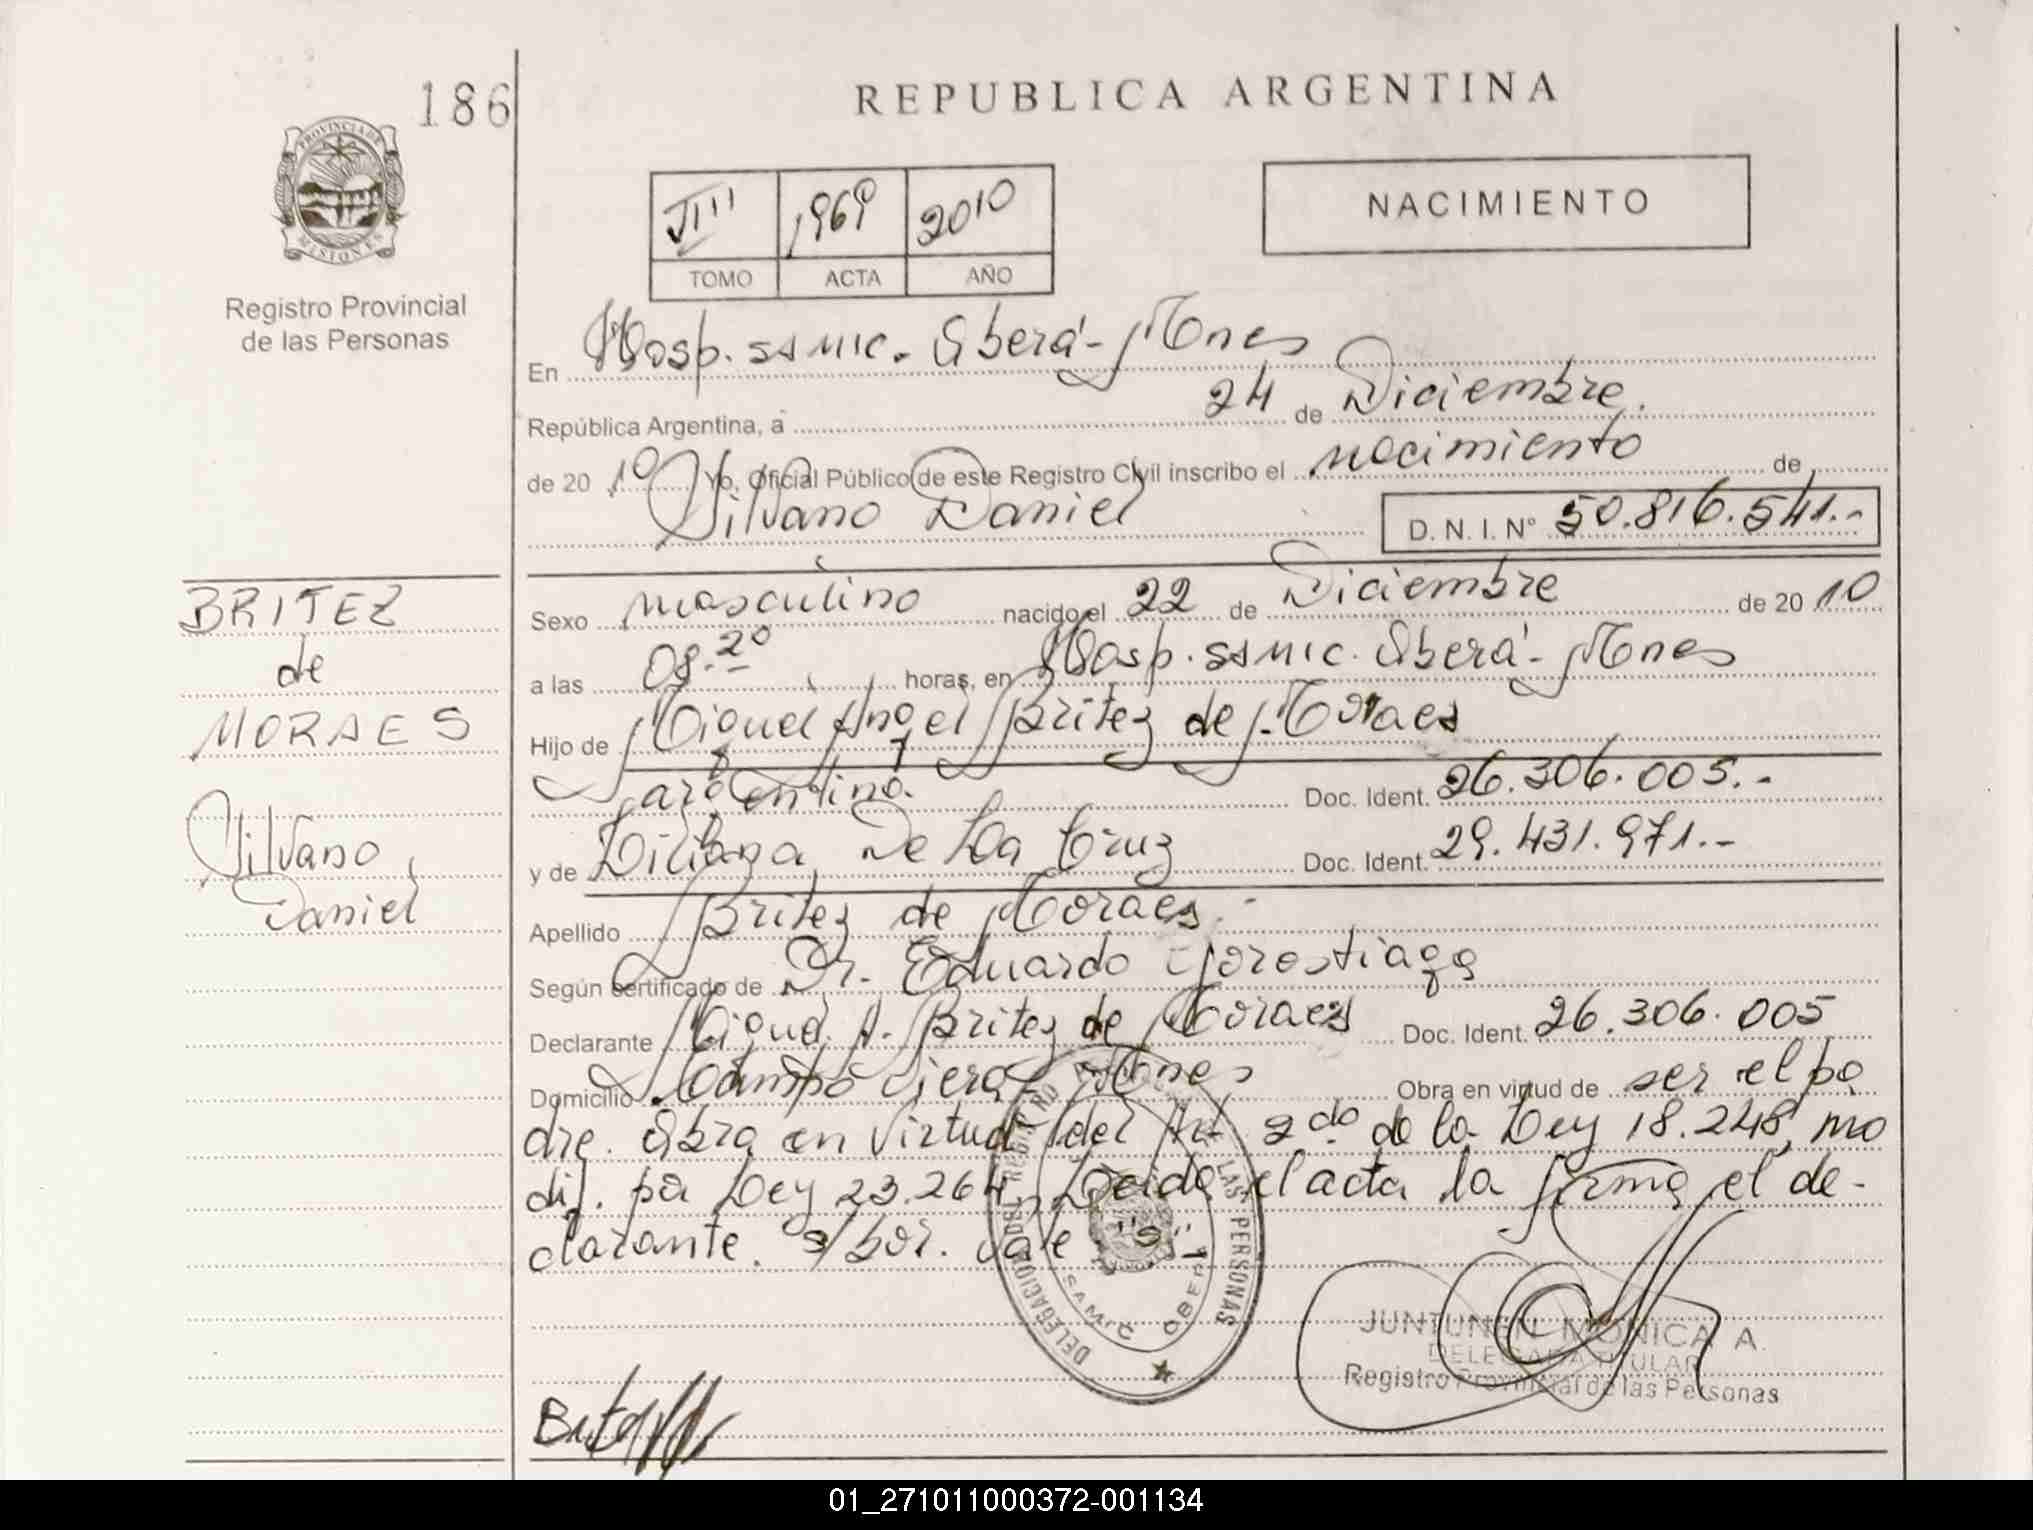 186
REPUBLICA ARGENTINA
PROVINCIA DE
MISIONES
Registro Provincial
de las Personas
1969 2010
TOMO ACTA AÑO
NACIMIENTO
En Hosp. SAMIC. Oberá - Mnes
República Argentina, a 24 de Diciembre.
de 20 10 Yo, Oficial Público de este Registro Civil inscribo el nacimiento de
Silvano Daniel D. N. I. Nº 50.816.541.-
BRITEZ
de
MORAES
Silvano
Daniel
Sexo masculino nacido el 22 de Diciembre de 20 10
a las 08.20 horas, en Hosp. SAMIC. Oberá - Mnes
Hijo de Miguel Angel Britez de Moraes
argentino. Doc. Ident. 26.306.005.-
y de Liliana De La Cruz Doc. Ident. 29.431.971.-
Apellido Britez de Moraes.-
Según certificado de Dr. Eduardo Gorostiaga
Declarante Miguel A. Britez de Moraes Doc. Ident. 26.306.005
Domicilio Campo Viera Mnes Obra en virtud de ser el pa
dre. Obra en virtud del Art 2do de la Ley 18.248, mo
dif. por Ley 23.264, Leida el acta la firma el de-
clarante. s/bor. vale "s"
DELEGACION DEL REGISTRO LAS PERSONAS
SAMIC OBERA
JUNTUNEN MONICA A.
DELEGADA TITULAR
Registro Provincial de las Personas
01_271011000372-001134